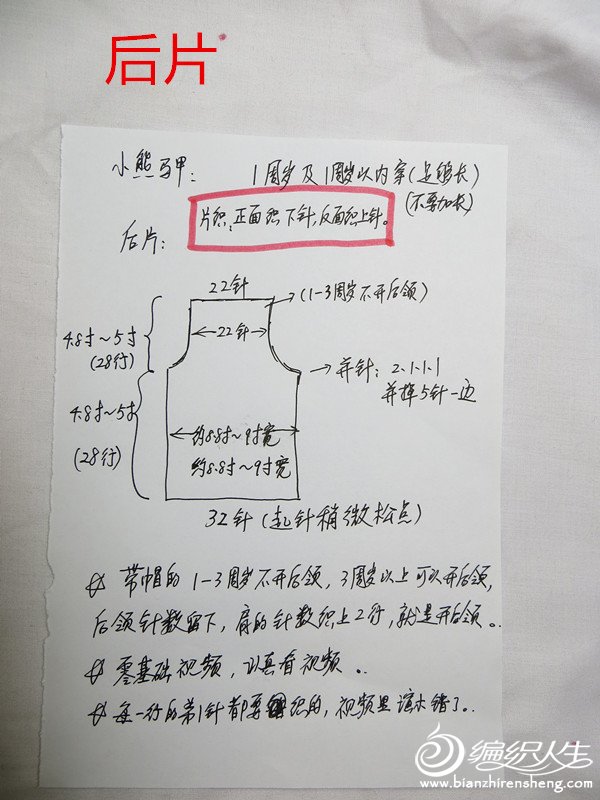 后片
小熊马甲: 1周岁及1周岁以内穿(足够长)
(不要加长)
后片: 片织,正面织下针,反面织上针。
22针
(1-3周岁不开后领)
22针
4.8寸~5寸
(28行)
并针: 2.1.1.1
并掉5针一边
4.8寸~5寸
(28行)
约8.8寸~9寸宽
约8.8寸~9寸宽
32针(起针稍微松点)
带帽的1-3周岁不开后领,3周岁以上可以开后领,
后领针数留下,肩的针数织上2行,就是开后领。.
零基础视频,认真看视频。.
每一行的第1针都要织的,视频里读错了。.
编织人生
www.bianzhirensheng.com